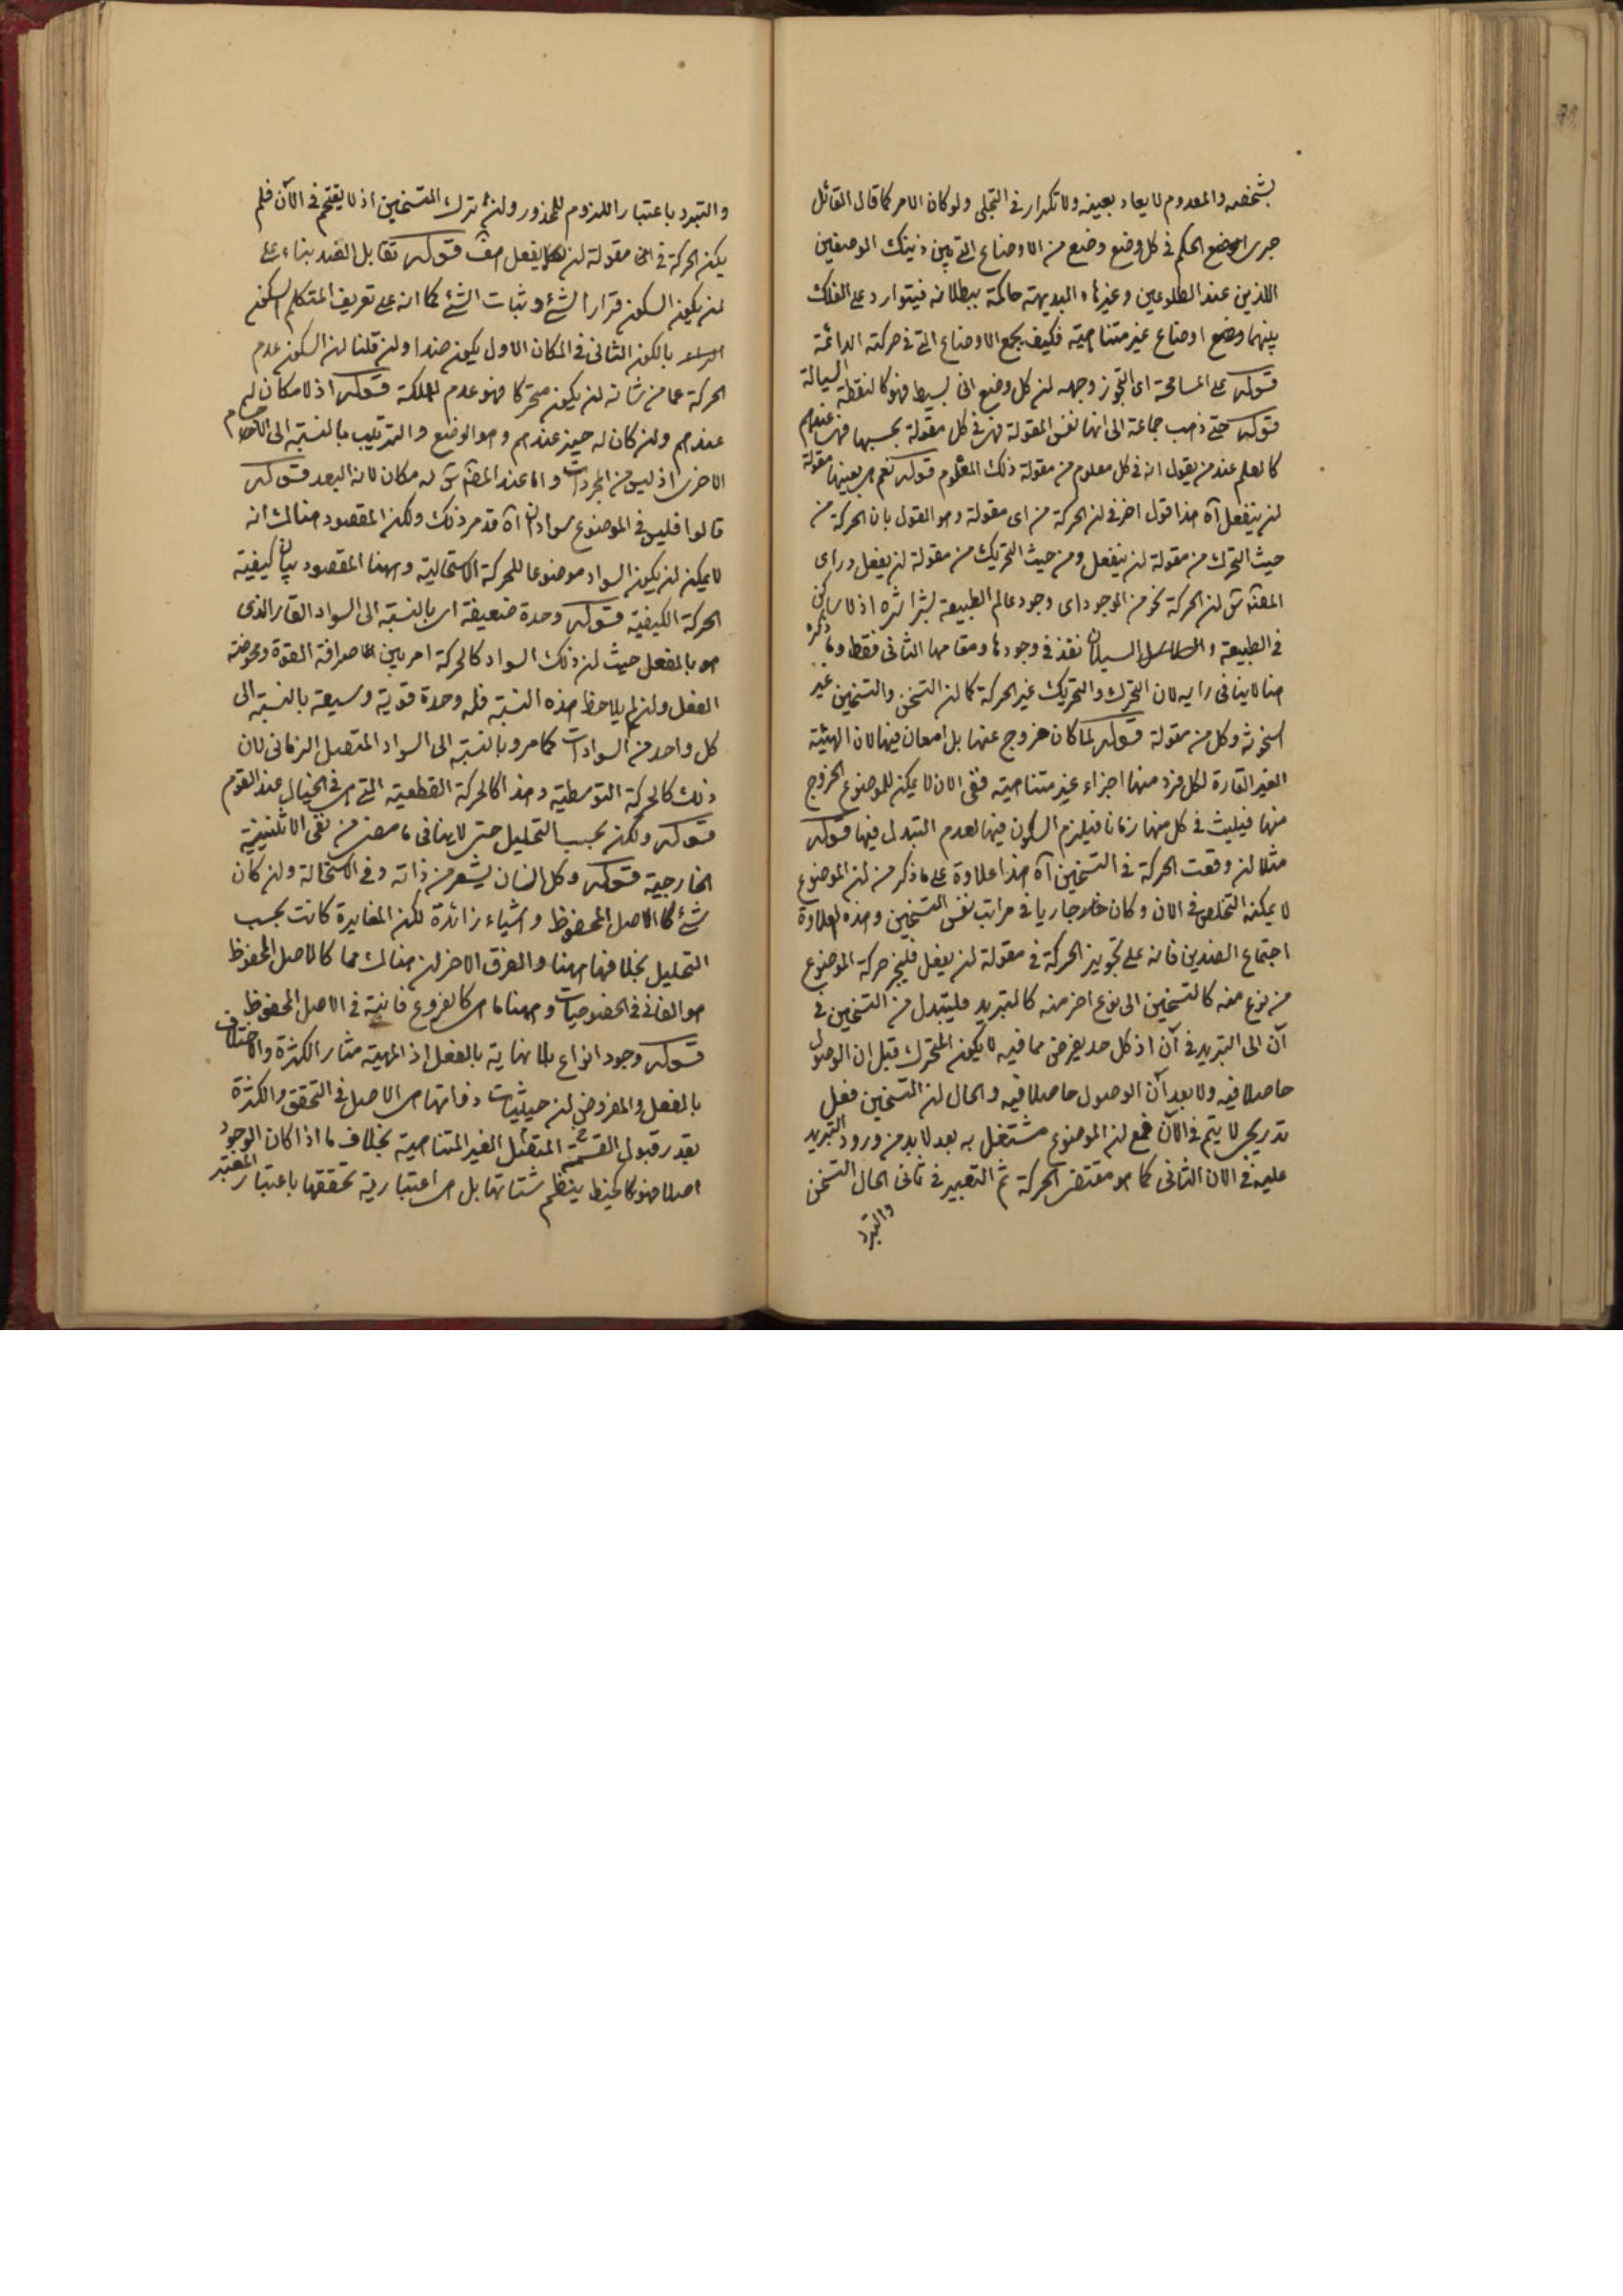 بشخصه والمعدوم لا يعاد بعينه ولا تكرار في التجلي ولو كان الامر كما قال القائل
جرى الحكم في كل وضع وضع من الاوضاع التي بين ذينك الوضعين
اللذين عند الطلوعين وغيرها والبديهة حاكمة ببطلانه فيتوارد على الفلك
بينهما وضع اوضاع غير متناهية فكيف بجمع الاوضاع التي في حركته الدائمة
قوله على المسامحة اى التجوز وجهه ان كل وضع انى بسيط فهو كالنقطة السيالة
قوله حتى ذهب جماعة الى انها نفس المقولة فهى في كل مقولة بحسبها فهى عندهم
كالعلم عند من يقول انه في كل معلوم من مقولة ذلك المعلوم قوله نعم هى بعينها مقولة
ان ينفعل آه هذا قول اخر في ان الحركة من اى مقولة وهو القول بان الحركة من
حيث التحرك من مقولة ان ينفعل ومن حيث التحريك من مقولة ان يفعل وراى
المصنف ان الحركة نحو من الوجود اى وجود عالم الطبيعة بشراشره اذ لا ساكن
في الطبيعة والسيلان نفذ في وجودها ومقامها الثانى فقط وما ذكره
هنا لا ينافى رايه لان التحرك والتحريك غير الحركة كما ان التسخن والتسخين غير
السخونة وكل من مقولة قوله لما كان خروج عنها بل امعان فيها لان الهيئة
الغير القارة لكل فرد منها اجزاء غير متناهية ففى الان لا يمكن للموضوع الخروج
منها فيلبث في كل منها زمانا فيلزم السكون فيها لعدم التبدل فيها قوله
مثلا ان وقعت الحركة في التسخين آه هذا علاوة على ما ذكر من ان الموضوع
لا يمكنه التخلص في الان وكان جاريا في مراتب نفس التسخين وهذه العلاوة
اجتماع الضدين فانه على تجويز الحركة في مقولة ان يفعل فليجز حركة الموضوع
من نوع منه كالتسخين الى نوع اخر منه كالتبريد فليتبدل من التسخين في
آن الى التبريد في آن اذ كل حد يفرض مما فيه لا يكون المتحرك قبل ان الوصول
حاصلا فيه ولا بعد آن الوصول حاصلا فيه والحال ان التسخين فعل
تدريجى لا يتم في الآن فمع ان الموضوع مشتغل به بعد لابد من ورود التبريد
عليه في الان الثانى كما هو مقتضى الحركة ثم التعبير في ثانى الحال التسخن
والتبرد
والتبرد باعتبار اللزوم للمحذور ولان ترك التسخين اذ لا يقتحم في الآن فلم
يكن الحركة في مقولة ان يفعل هف قوله تقابل الضد بناء على
ان يكون السكون قرار الشئ وثبات الشئ كما انه على تعريف المتكلم السكون
بالكون الثانى في المكان الاول يكون ضدا وان قلنا ان السكون عدم
الحركة عما من شانه ان يكون متحركا فهو عدم الملكة قوله اذ لا مكان له
عندهم وان كان له حيز عندهم وهو الوضع والترتيب بالنسبة الى الاجسام
الاخرى اذ ليس من المجردات واما عند المصنف له مكان لانه البعد قوله
قالوا فليس في الموضوع سوادان آه قد مر ذلك ولكن المقصود هنالك انه
لا يمكن ان يكون السواد موضوعا للحركة الاستحالية وههنا المقصود بيان كيفية
الحركة الكيفية قوله وحدة ضعيفة اى بالنسبة الى السواد القار الذى
هو بالفعل حيث ان ذلك السواد كالحركة امر بين صرافة القوة ومحوضة
الفعل وان لم يلاحظ هذه النسبة فله وحدة قوية وسيعة بالنسبة الى
كل واحد من السوادات كما مر وبالنسبة الى السواد المتصل الزمانى لان
ذلك كالحركة التوسطية وهذا كالحركة القطعية التى هى في الخيال عند القوم
قوله ولكن بحسب التحليل حتى لا ينافى ما مضى من نفى الاثنينية
الخارجية قوله وكل انسان يشعر من ذاته وفى الاستحالة وان كان
شئ كالاصل المحفوظ واشياء زائدة لكن المغايرة كانت بحسب
التحليل بخلافها ههنا والفرق الاخر ان هنالك مما كالاصل المحفوظ
هو الفانى في الخصوصيات وههنا ما هى كالفروع فانية في الاصل المحفوظ
قوله وجود انواع بلا نهاية بالفعل اذ المهية مثار الكثرة والاختلاف
بالفعل والمفروض ان حيثيات ذواتها هى الاصل في التحقق والكثرة
بقدر قبول القسمة المتصل الغير المتناهية بخلاف ما اذا كان الوجود
اصلا فهو كالخيط ينظم شتاتها بل هى اعتبارية تحققها باعتبار المعتبر